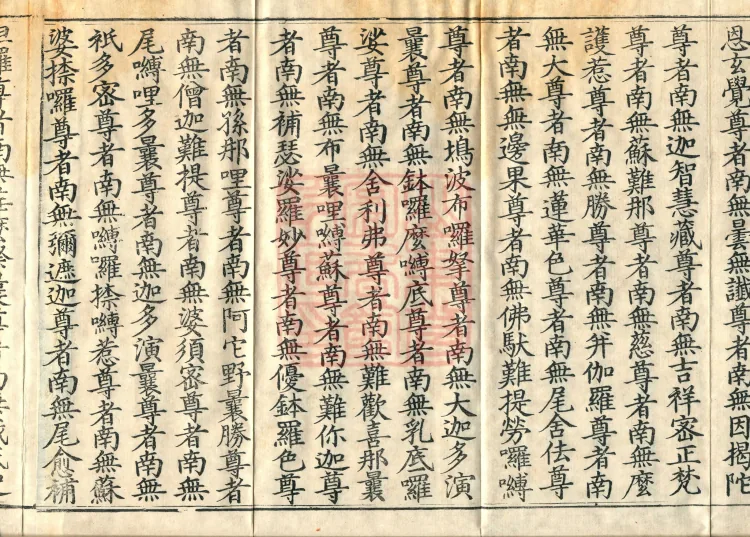 恩玄覺尊者南無曇無讖尊者南無因揭陀
尊者南無迦智慧藏尊者南無吉祥密正梵
尊者南無蘇難那尊者南無忩尊者南無麼
護惹尊者南無勝尊者南無幷伽羅尊者南
無大尊者南無蓮華色尊者南無尾舍佉尊
者南無無邊果尊者南無佛馱難提勞囉嚩
尊者南無塢波布囉拏尊者南無大迦多演
曩尊者南無鉢囉麼嚩底尊者南無乳底囉
娑尊者南無舍利弗尊者南無難歡喜那曩
尊者南無布曩哩嚩蘇尊者南無難你迦尊
者南無補瑟娑羅妙尊者南無優鉢羅色尊
者南無孫那哩尊者南無阿它野曩勝尊者
南無僧迦難提尊者南無婆須密尊者南無
尾嚩哩多曩尊者南無迦多演曩尊者南無
祇多密尊者南無嚩囉捺嚩惹尊者南無蘇
婆捺囉尊者南無彌遮迦尊者南無尾愈補